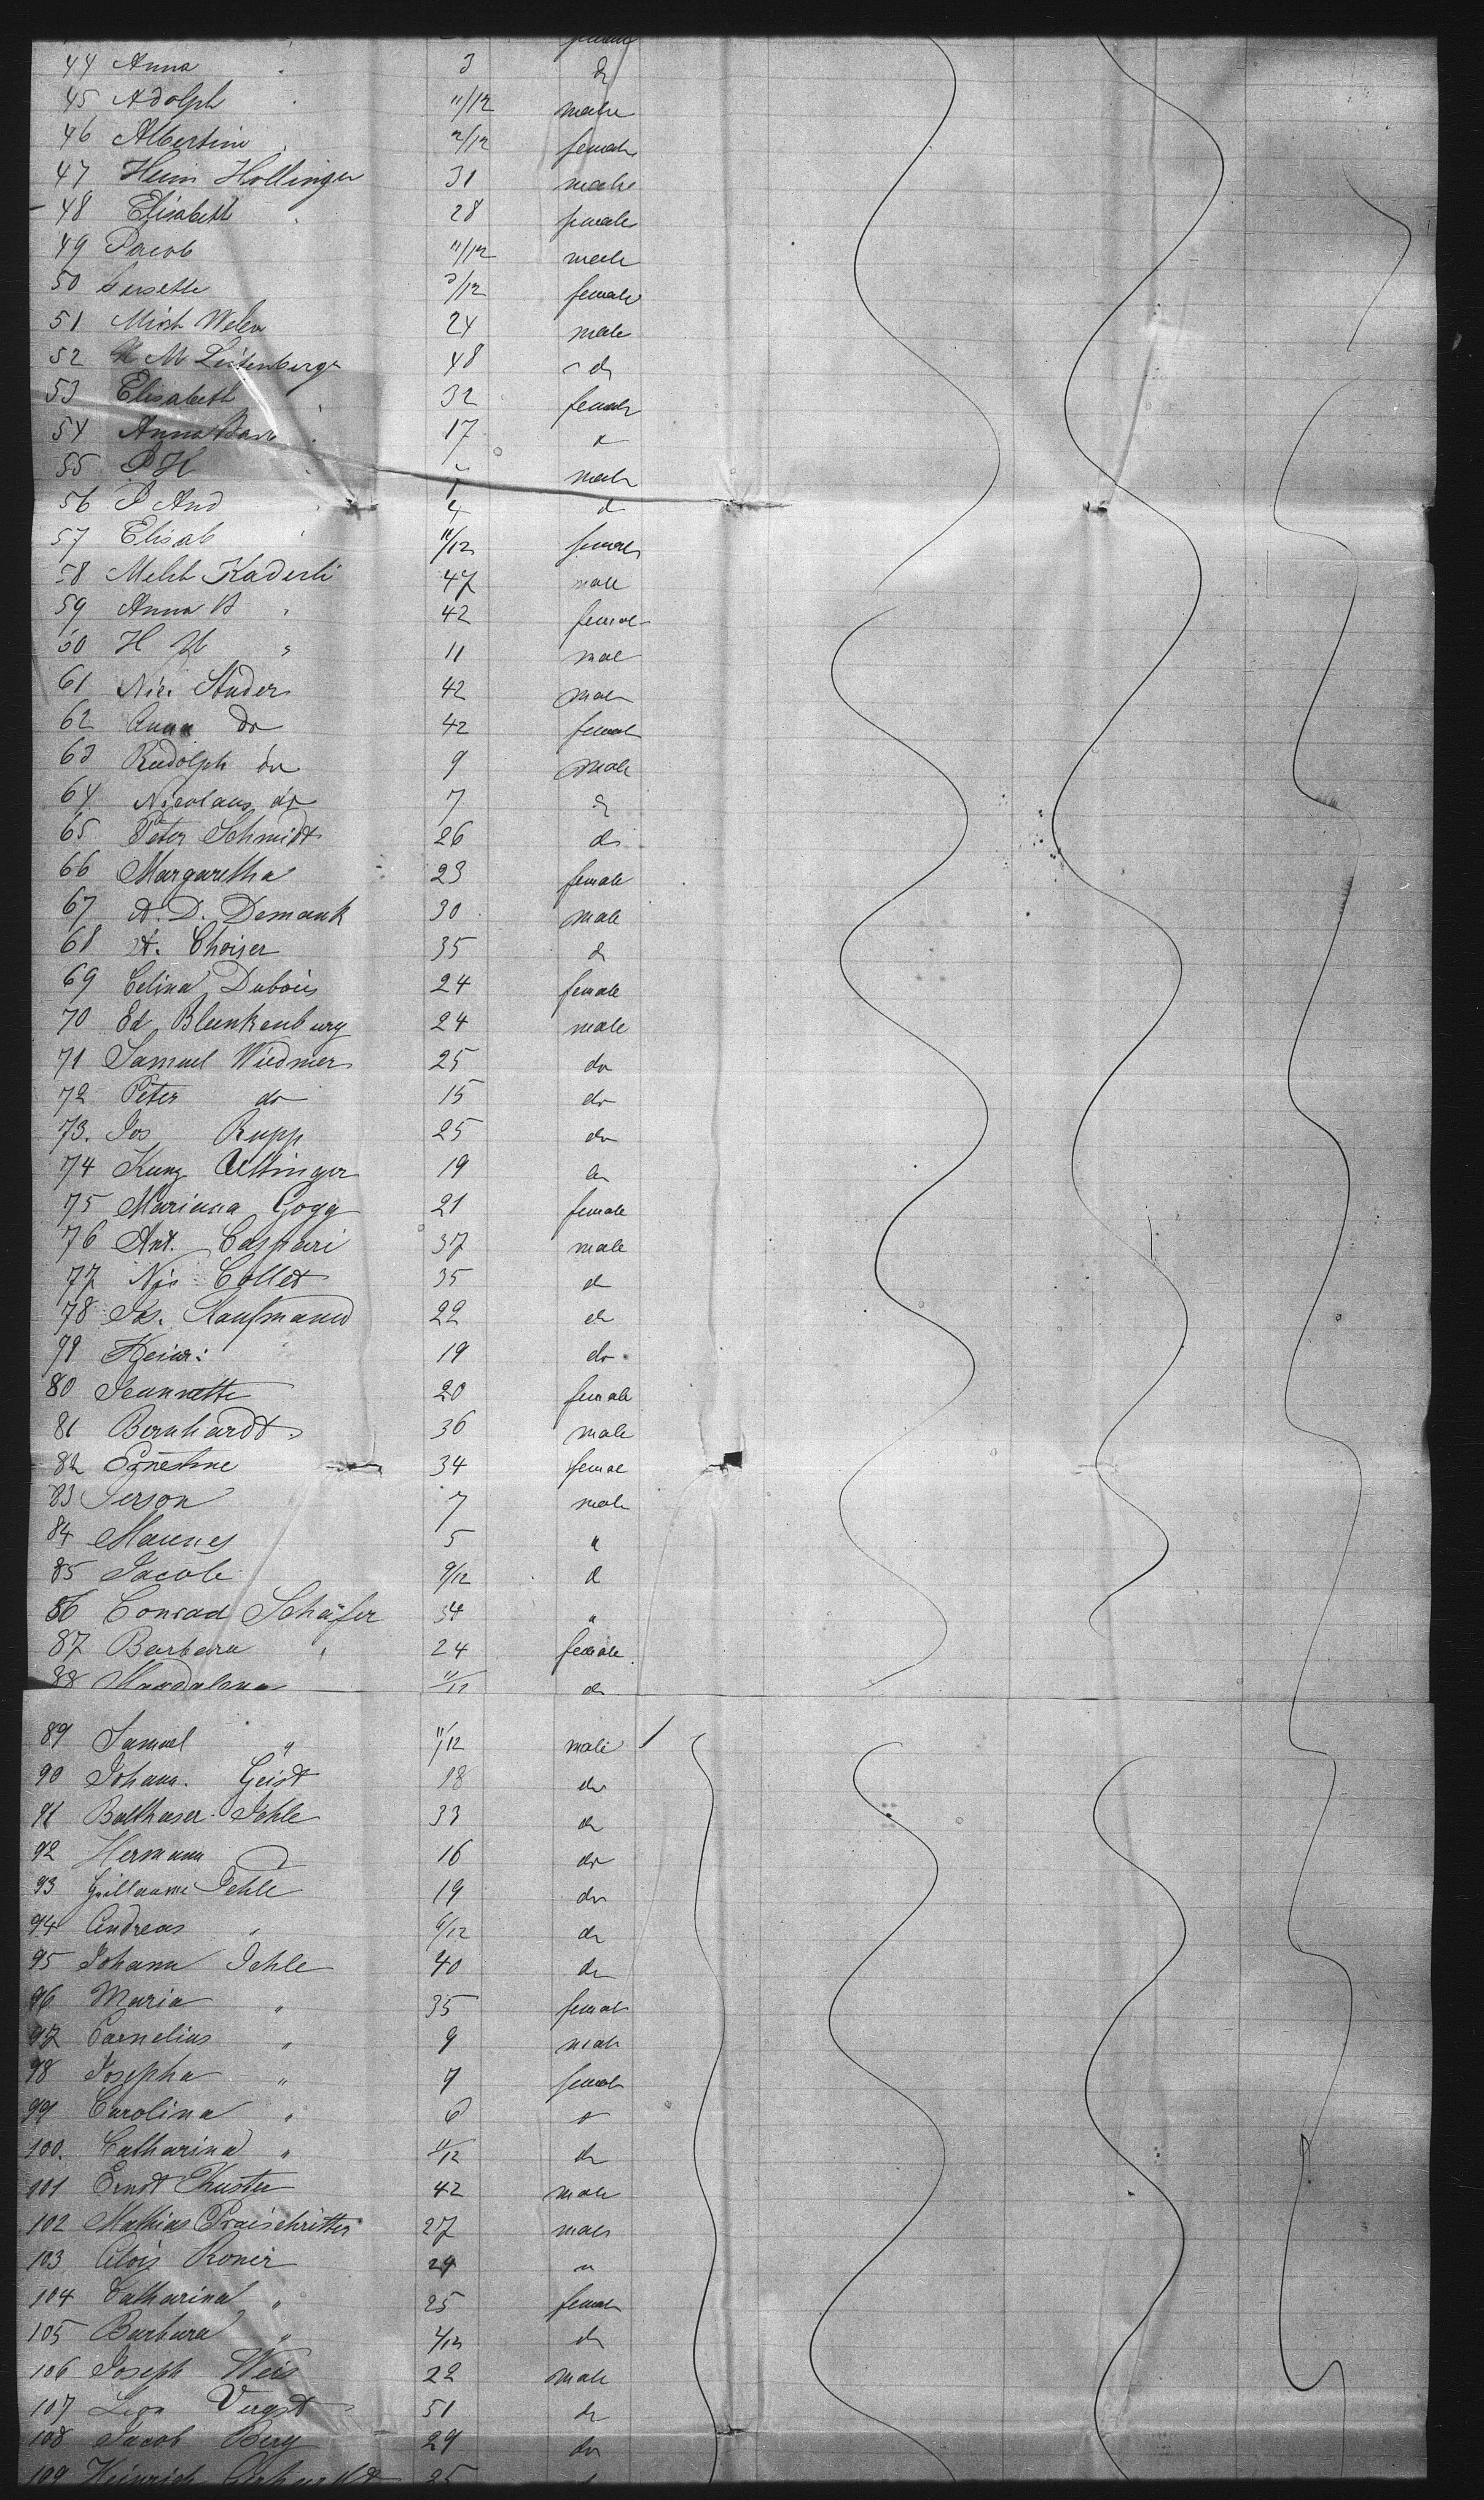 female
44 Anna " 3 do
45 Adolph " 11/12 male
46 Albertine " 2/12 female
47 Heinr Hollinger 31 male
48 Elisabeth " 28 female
49 Jacob 11/12 male
50 3/12 female
51 24 male
52 M Leitenberger 48 do
53 Elisabeth " 32 female
54 Anna Barb " 17 do
55 P H male
56 P And " 4 do
57 Elisab " 11/12 female
58 Melch Kaderli 47 male
59 Anna B " 42 female
60 H " 11 male
61 Nic. Studer 42 male
62 Anna do 42 female
63 Rudolph do 9 male
64 Nicolaus do 7 do
65 Peter Schmidt 26 do
66 Margaretha " 23 female
67 A. D. Demank 30 male
68 A. Choiser 35 do
69 Celina Dubois 24 female
70 Ed Blankenburg 24 male
71 Samuel Wiedmer 25 do
72 Peter do 15 do
73. Jos Rupp 25 do
74 Kunz 19 do
75 Mariana Gogg 21 female
76 Ant. Caspari 37 male
77 Nic Collet 35 do
78 Jos. Kaufmann 22 do
79 Heinr: 19 do
80 Jeannette 20 female
81 Bernhardt 36 male
82 Ernestine 34 female
83 Gerson 7 male
84 Mannes 5 "
85 Jacob 9/12 do
86 Conrad Schäfer 34 "
87 Barbara " 24 female
88 Magdalena 11/12 do
89 Samuel " 11/12 male
90 Johann. Geist 18 do
91 Balthaser Jehle 33 do
92 Hermann 16 do
93 Guillaume Jehle 19 do
94 Andreas " 6/12 do
95 Johann Jehle 40 do
96 Maria " 35 female
97 Cornelius " 9 male
98 Josepha " 7 female
99 Carolina " 6 do
100. Catharina " 11/12 do
101 Ernst Kuster 42 male
102 Mathias 27 male
103 Alois Roner 24 "
104 Catharina " 25 female
105 Barbara " do
106 Joseph Weis 22 male
107 51 do
108 Jacob Berg 29 do
109 Heinrich 25